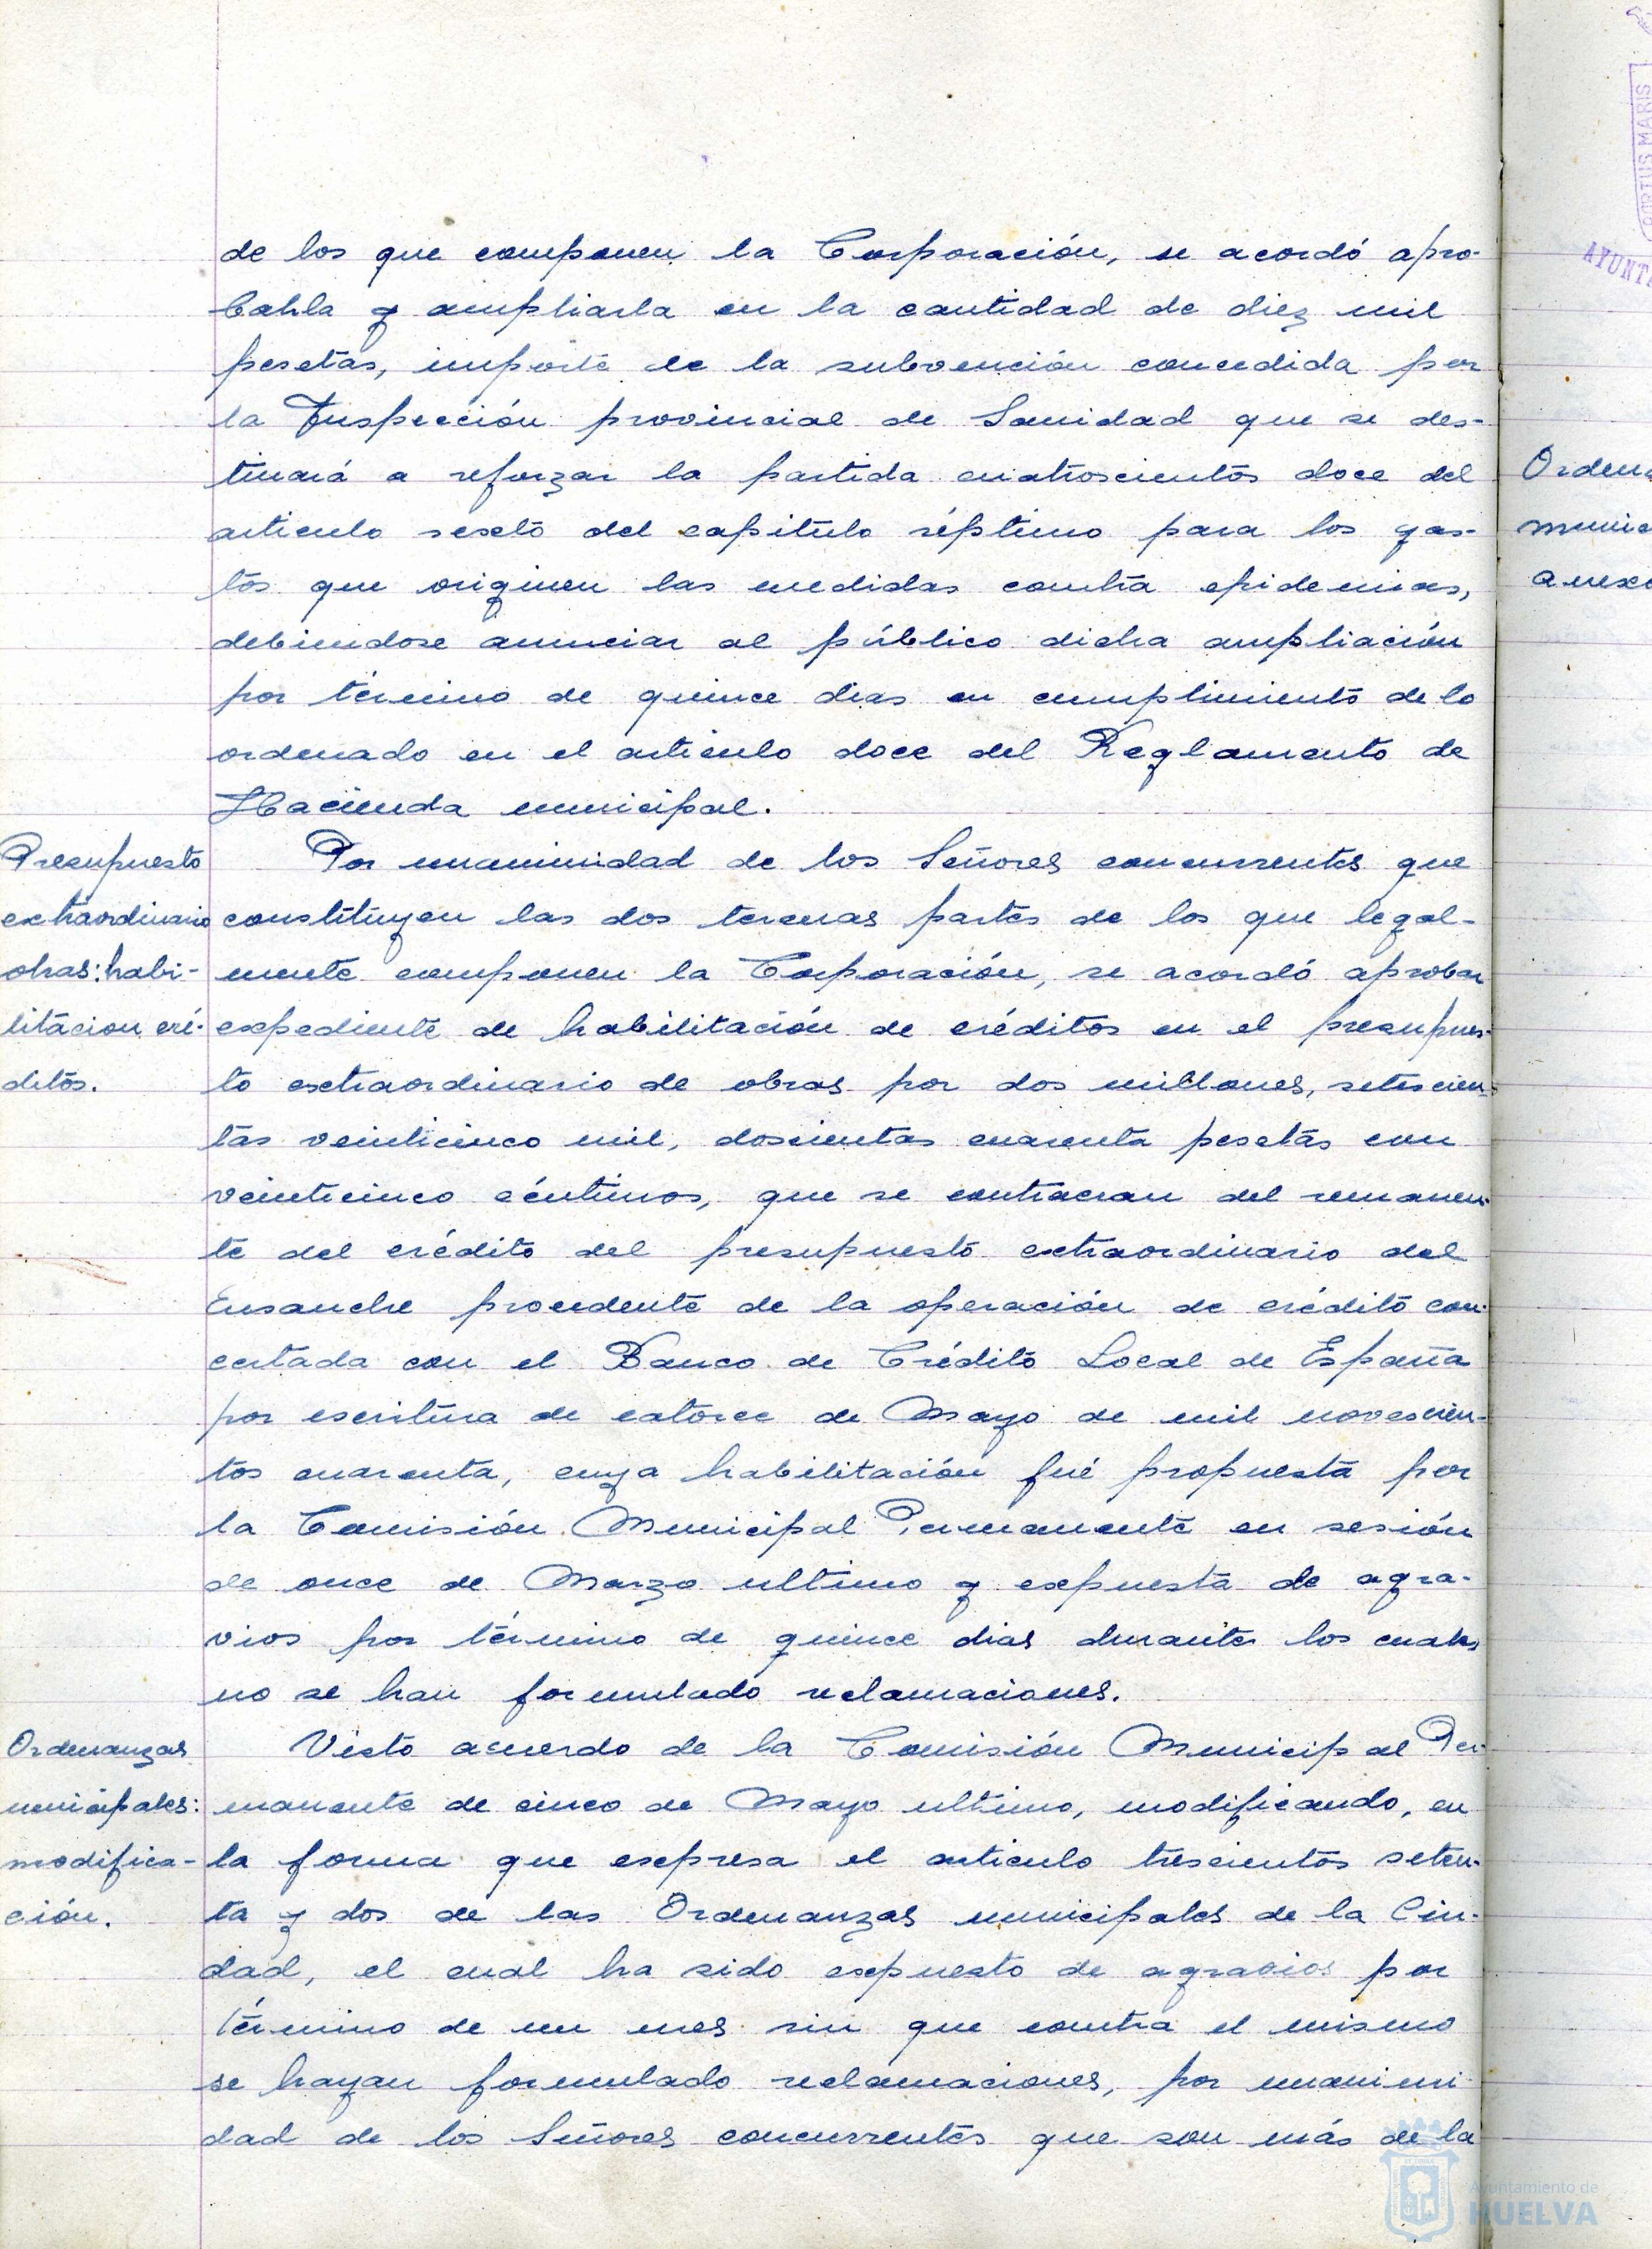 de los que componen la Corporación, se acordó apro-
barla y ampliarla en la cantidad de diez mil
pesetas, importe de la subvención concedida por
la Inspección provincial de Sanidad que se des-
tinará a reforzar la partida cuatroscientos doce del
articulo sexto del capitulo séptimo para los gas-
tos que originen las medidas contra epidemias,
debiendose anunciar al público dicha ampliación
por término de quince dias en cumplimiento de lo
ordenado en el articulo doce del Reglamento de
Hacienda municipal.
Presupuesto
extraordinario
obras: habi-
litacion cré-
ditos.
Por unanimidad de los Señores concurrentes que
constituyen las dos terceras partes de los que legal-
mente componen la Corporación, se acordó aprobar
expediente de habilitación de créditos en el presupues-
to extraordinario de obras por dos millones, setescien-
tas veinticinco mil, doscientas cuarenta pesetas con
veinticinco céntimos, que se contraeran del remanen-
te del crédito del presupuesto extraordinario del
Ensanche procedente de la operación de crédito con-
certada con el Banco de Crédito Local de España
por escritura de catorce de Mayo de mil novescien-
tos cuarenta, cuya habilitación fué propuesta por
la Comisión Municipal Permanente en sesión
de once de Marzo ultimo y expuesta de agra-
vios por término de quince dias durantes los cuales
no se han formulado reclamaciones.
Ordenanzas
municipales:
modifica-
ción.
Visto acuerdo de la Comisión Municipal Per-
manente de cinco de Mayo ultimo, modificando, en
la forma que expresa el articulo trescientos seten-
ta y dos de las Ordenanzas municipales de la Ciu-
dad, el cual ha sido expuesto de agravios por
término de un mes sin que contra el mismo
se hayan formulado reclamaciones, por unanimi-
dad de los Señores concurrentes que son más de la
PORTUS MARIS
Ayuntamiento de
HUELVA